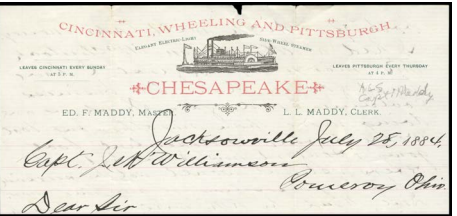 CINCINNATI, WHEELING AND PITTSBURGH
ELEGANT ELECTRIC-LIGHT SIDE-WHEEL STEAMER
LEAVES CINCINNATI EVERY SUNDAY
AT 5 P. M.
LEAVES PITTSBURGH EVERY THURSDAY
AT 4 P. M.
CHESAPEAKE
ALS
Capt Maddy
ED. F. MADDY, MASTER.
L. L. MADDY, CLERK.
Jacksonville July 28, 1884.
Capt J. N. Williamson
Pomeroy Ohio
Dear Sir